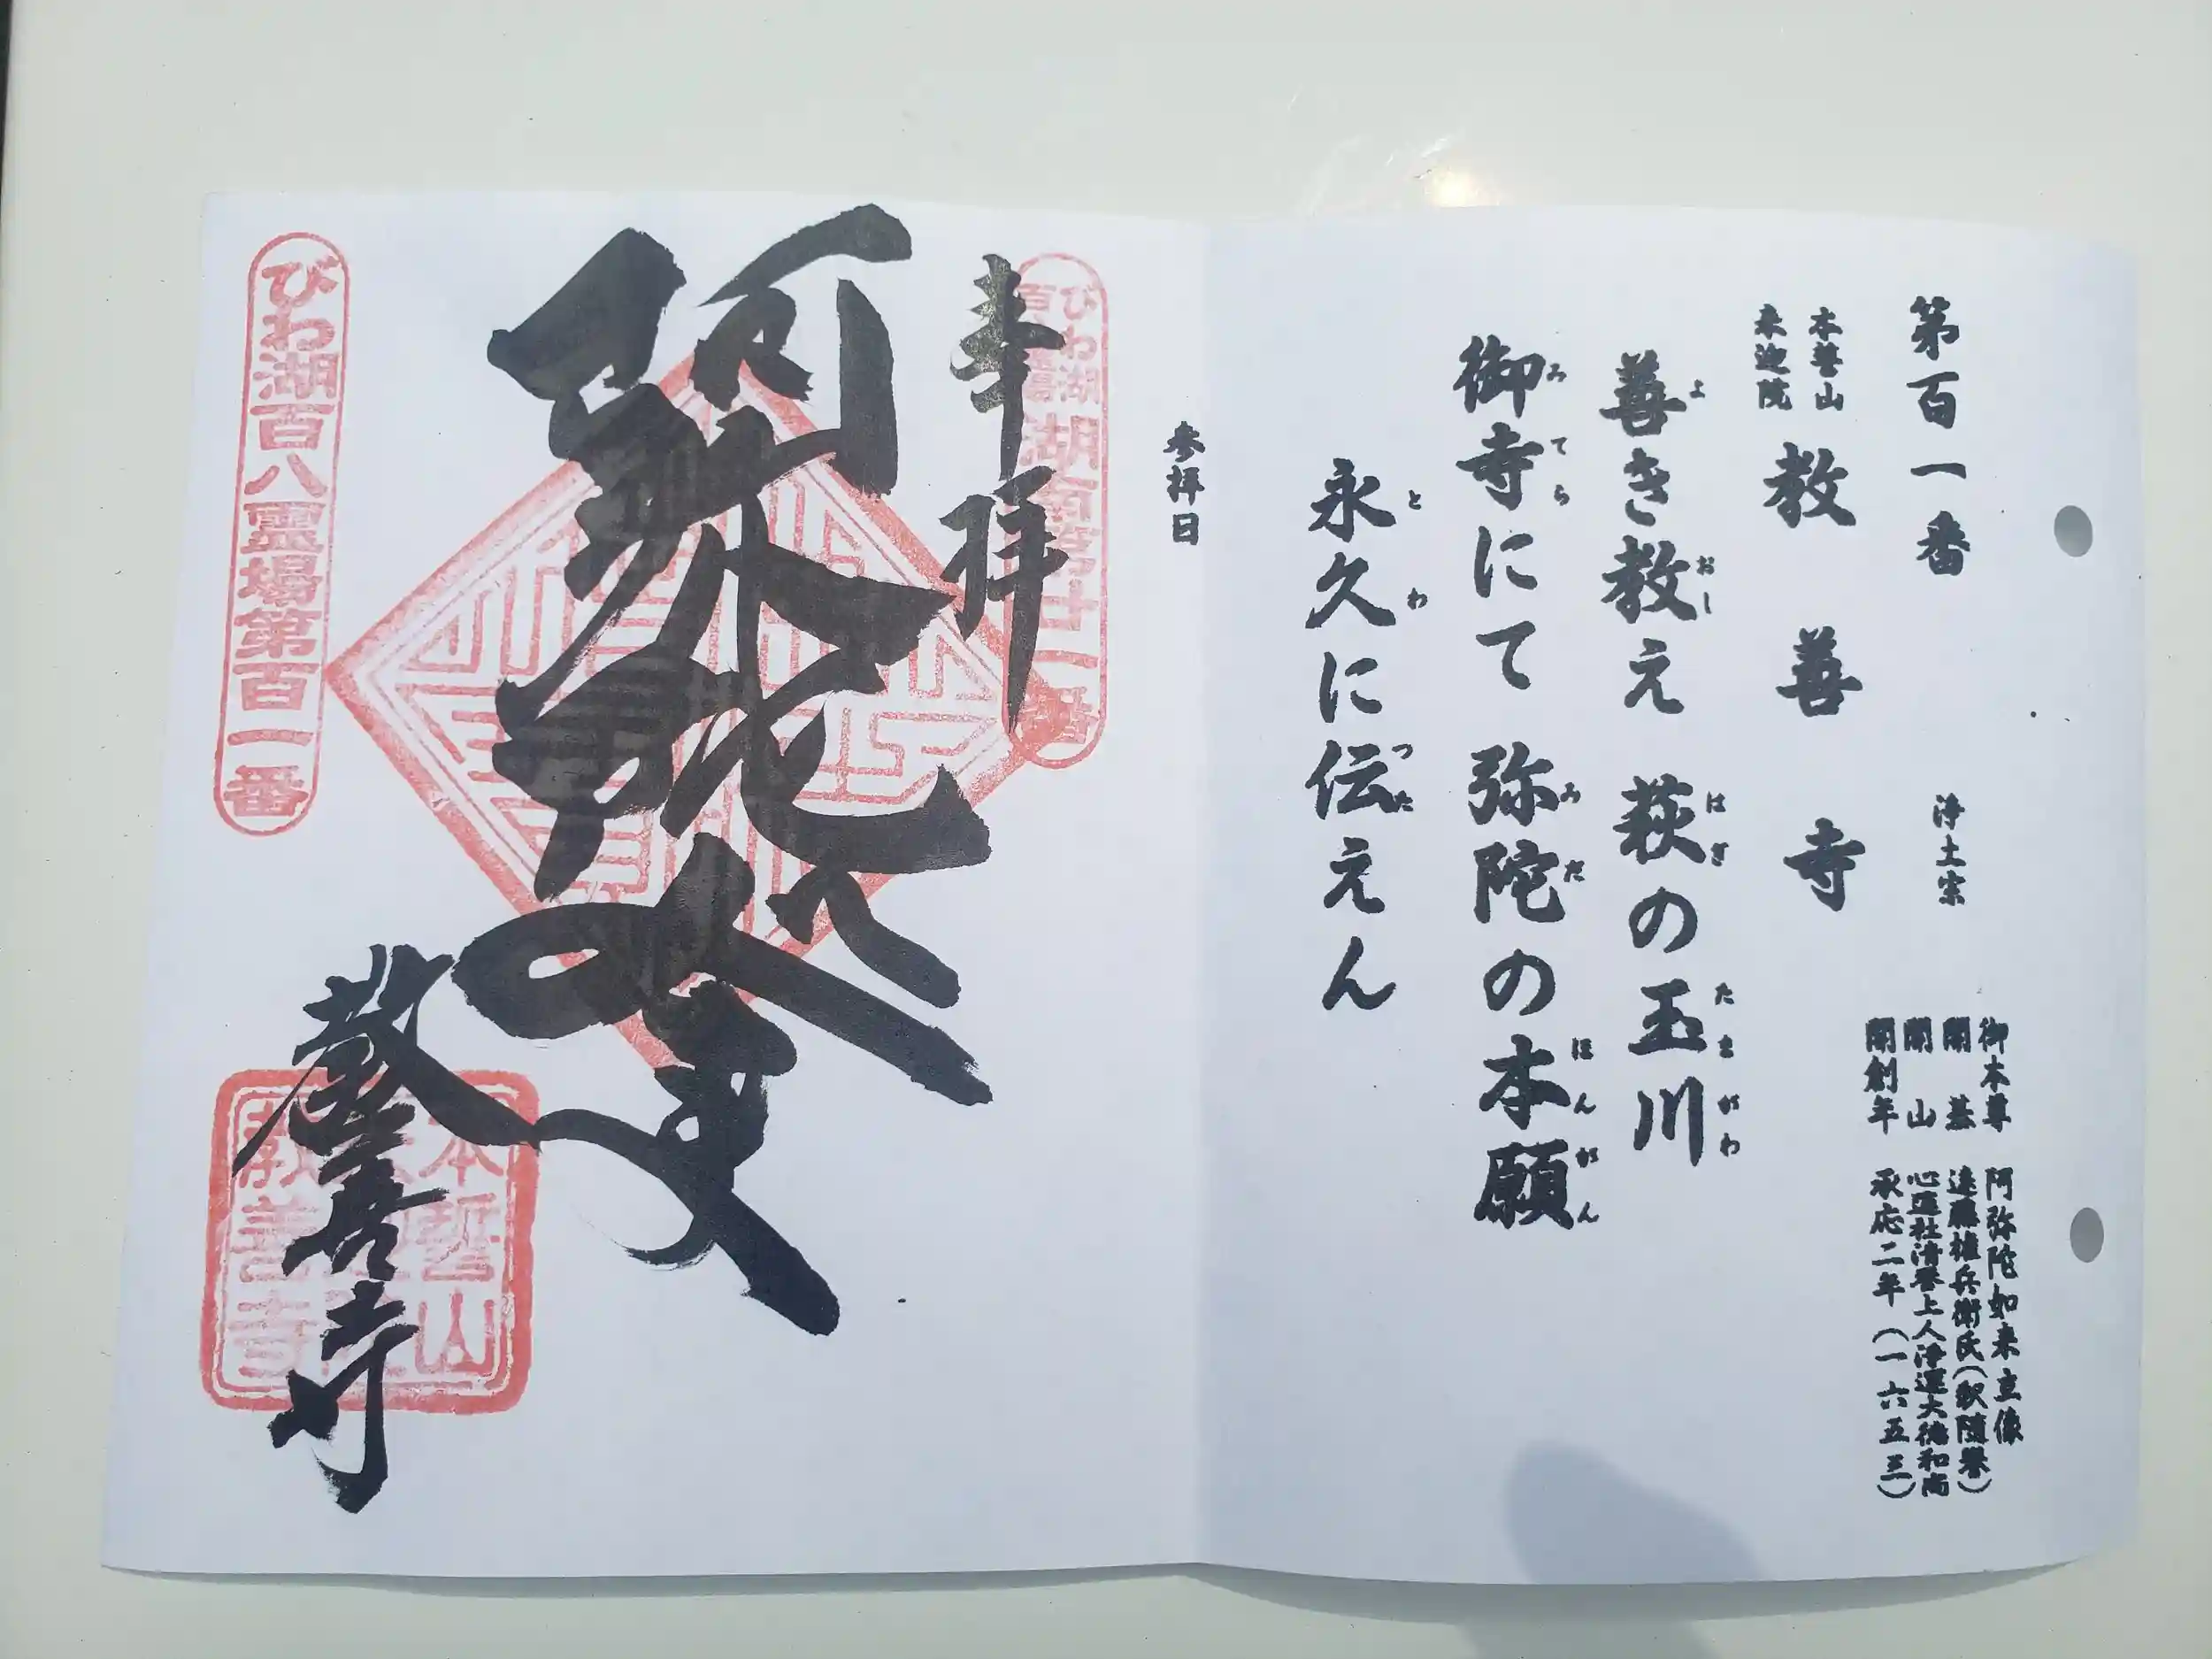 第百一番 浄土宗
本誓山
来迎院
教善寺
御本尊 阿弥陀如来立像
開基 遠藤権兵衛氏(釈随誉)
開山 心蓮社清誉上人浄運大徳和尚
開創年 承応二年(一六五三)
善き教え 萩の玉川
よ おし はぎ たまがわ
御寺にて 弥陀の本願
みてら みだ ほんがん
永久に伝えん
とわ つた
参拝日
びわ湖
百八霊場
湖南第十一番
奉拝
阿弥陀如来
教善寺
本誓山
教善寺
びわ湖百八霊場第百一番